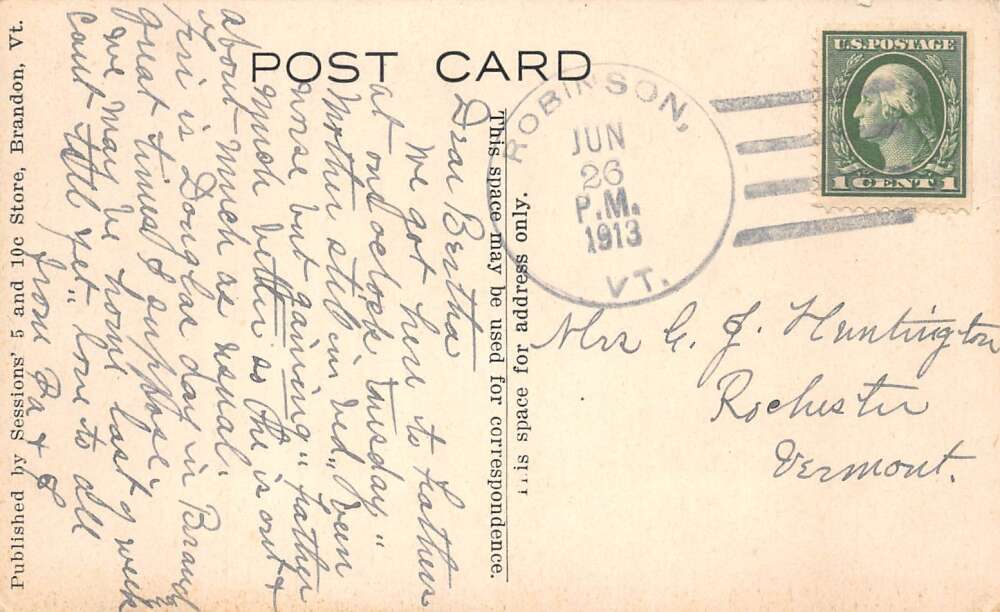 POST CARD
Dear Bertha
We got here to Fathers
at one oclock Tuesday"
Mother still in bed" been
worse but gaining" Father
Much better as he is out &
about Much as usual.
Fri is Douglas day in Brand
great times I suppose.
We May be home last of week
cant tell yet" love to all
from Pa &
This space may be used for correspondence.
This space for address only.
Published by Sessions' 5 and 10c Store, Brandon, Vt.
ROBINSON,
JUN
26
P.M.
1913
VT.
U.S. POSTAGE
1 CENT 1
Mrs G. J. Huntington
Rochester
Vermont.